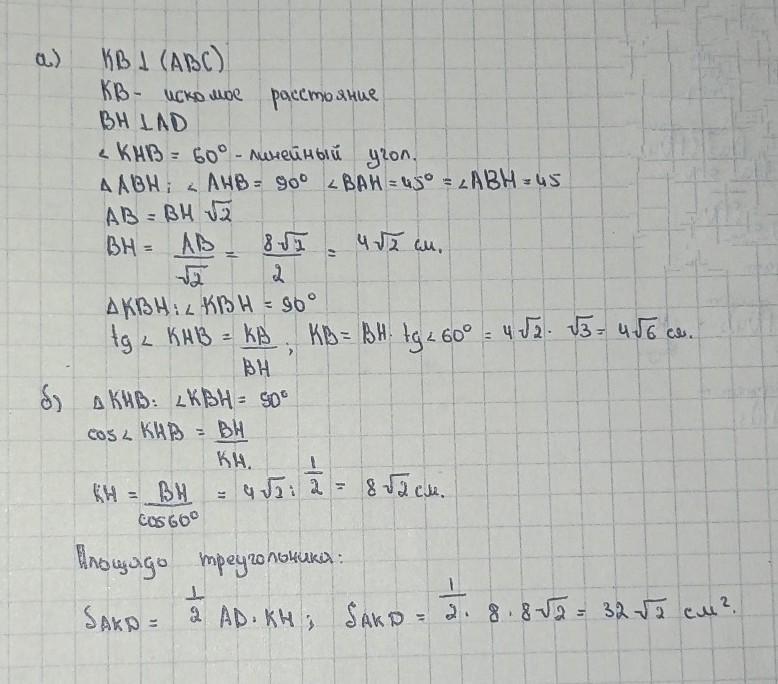 а) KB⊥(ABC)
KB - искомое расстояние
BH⊥AD
∠KHB = 60° - линейный угол.
ΔABH; ∠AHB = 90° ∠BAH = 45° = ∠ABH = 45
AB = BH √2
BH = AB/√2 = 8√2/2 = 4√2 см.
ΔKBH: ∠KBH = 90°
tg∠KHB = KB/BH; KB = BH · tg∠60° = 4√2 · √3 = 4√6 см.
б) ΔKHB: ∠KBH = 90°
cos∠KHB = BH/KH.
KH = BH/cos60° = 4√2 : 1/2 = 8√2 см.
Площадь треугольника:
S_AKD = 1/2 AD · KH; S_AKD = 1/2 · 8 · 8√2 = 32√2 см².